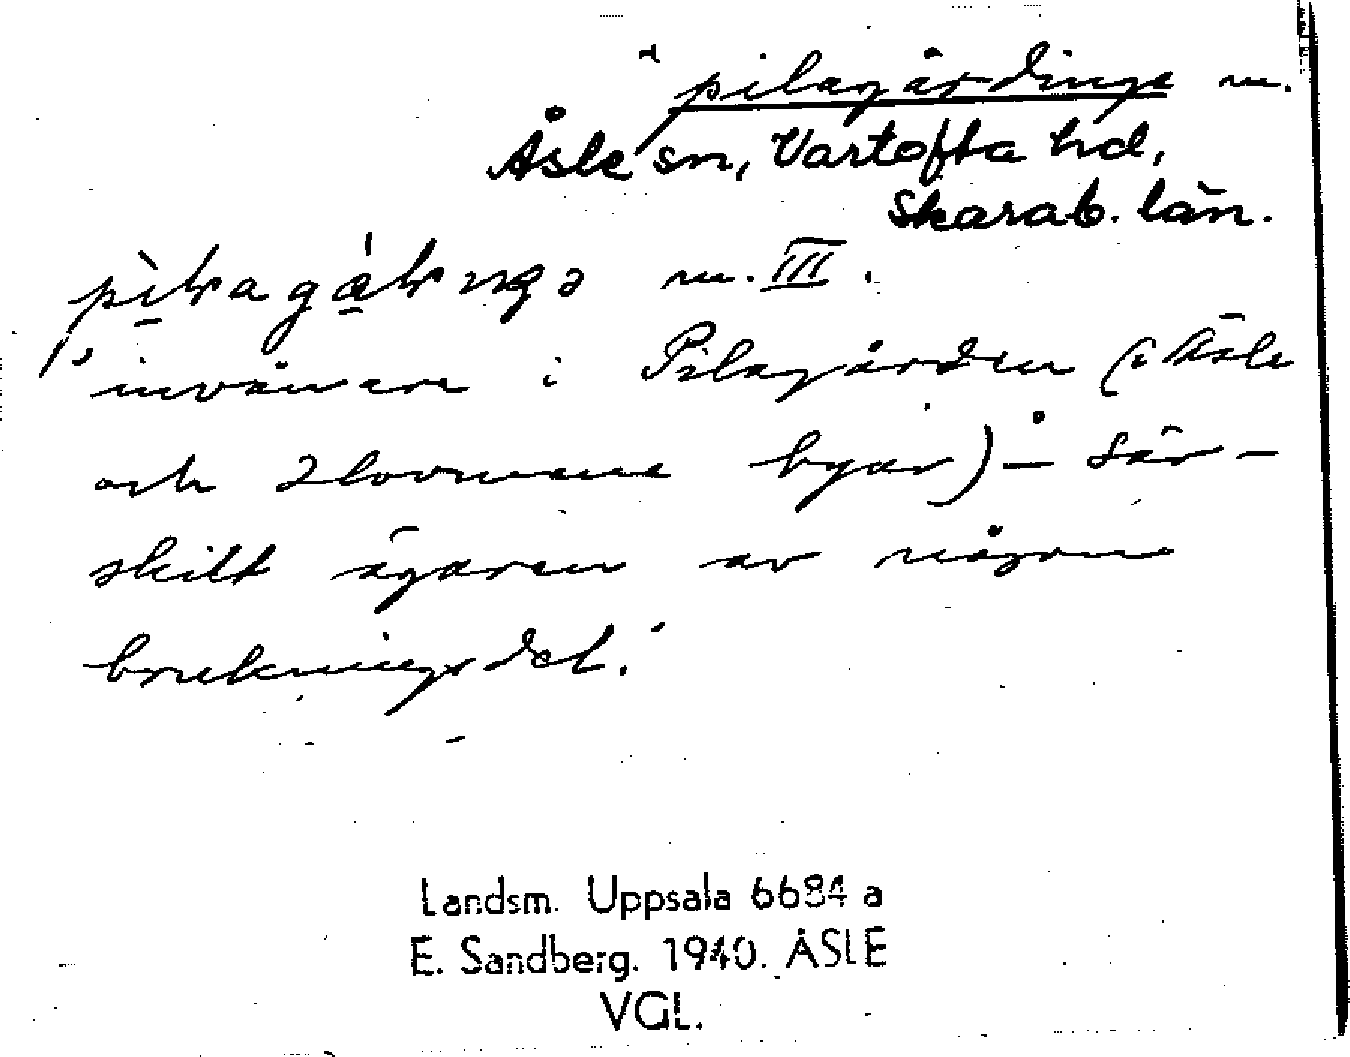 pilagårdinge m.
Åsle sn, Vartofta hd,
Skarab. län.
m. III.
invånare i Pilagården (i Åsle
och byar) — sär-
skilt ägaren av någon
brukningsdel.
Landsm. Uppsala 6684 a
E. Sandberg. 1940. ÅSLE
VGL.